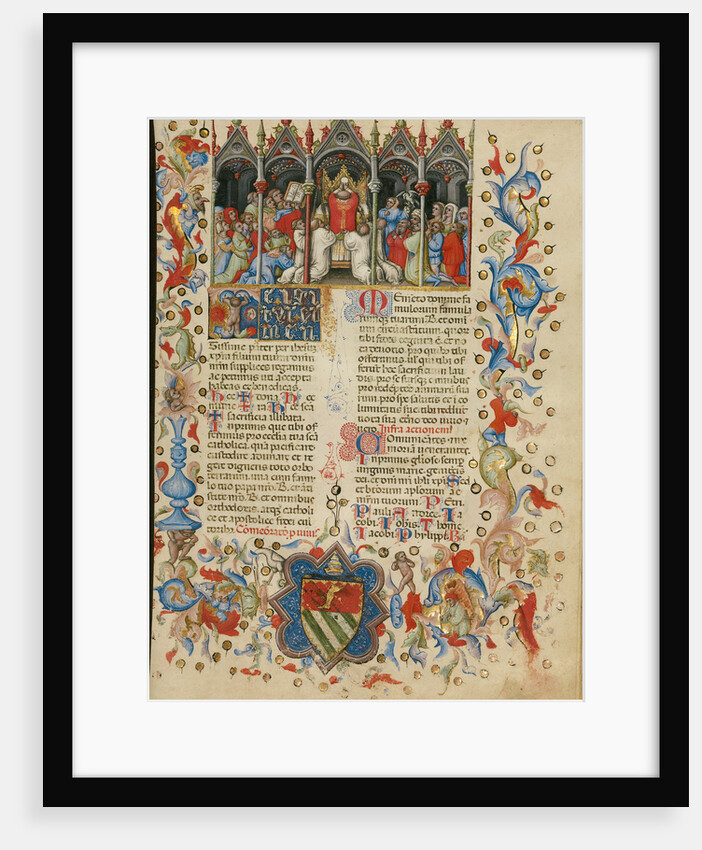 TE IGI
TUR CLE
MEN
tissime pater per ihesum
xpm filium tuum dnm
nrm supplices rogamus
ac petimus uti accepta
habeas et benedicas.
hec ✠ dona hec
munera hec sca
sacrificia illibata.
Inprimis que tibi of
ferimus pro ecclia tua sca
catholica. quā pacificare
custodire. adunare et re
gere digneris toto orbe
terrarum. una cum famu
lo tuo papa nro. et anti
stite nro. et omnibus
orthodoxis. atqz catholi
ce et apostolice fidei cul
toribus. Comeoratio p uiuis.
Memeto domine fa
mulorum famula
rumqz tuarum et omi
um circūastātium. quor
tibi fides cognita est et no
ta deuotio. pro quibz tibi
offerimus. uel qui tibi of
ferūt hoc sacrificium lau
dis. pro se suisqz omnibus
pro redeptōe animarū sua
rum pro spe salutis et īco
lumitatis sue tibi reddūt
uota sua eterno deo uiuo
uero. Infra actionem
Comunicātes. et me
moriā uenerantes.
Inprimis gliose semp
uirginis marie. genitricis
dei. et dni nri ihu xpi. Sed
et btorum aplorum. ac
mrm tuorum Petri
Pauli Andree Ia
cobi Iohis Thome
Iacobi Phylippi Ba